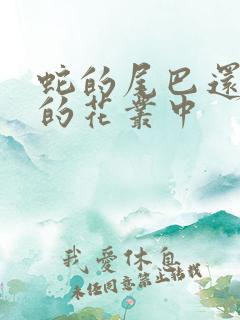 蛇的尾巴還
的花叢中
我愛休息
未经同意禁止转载